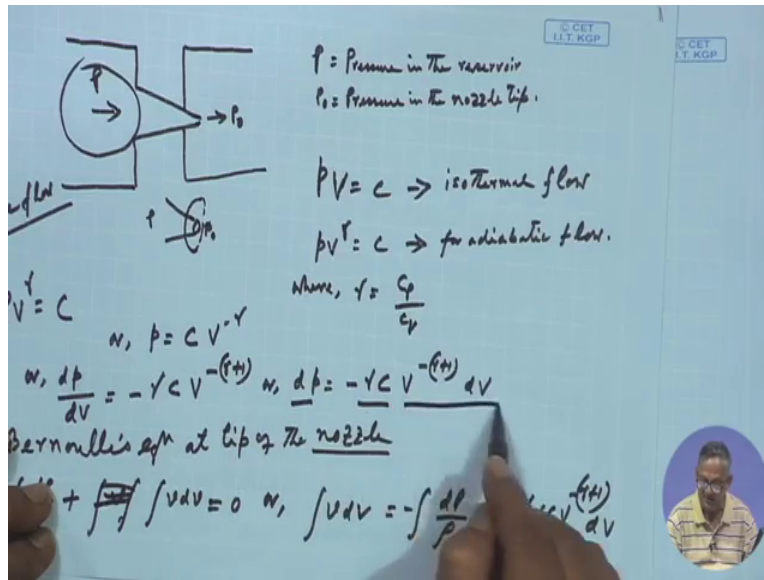 © CET
I.I.T. KGP
© CET
I.I.T. KGP
P = Pressure in the reservoir
P₀ = Pressure in the nozzle tip.
P
→ P₀
PV = C → isothermal flow
PVᵞ = C → for adiabatic flow.
where, γ = Cp/Cv
flow
P P₀
Vᵞ = C
or, p = C V^-γ
or, dp/dV = -γC V^-(γ+1) or, dp = -γC V^-(γ+1) dV
Bernoulli's eqn at tip of the nozzle
+ ∫VdV = 0 or, ∫VdV = -∫dP/ρ V^-(γ+1) dV